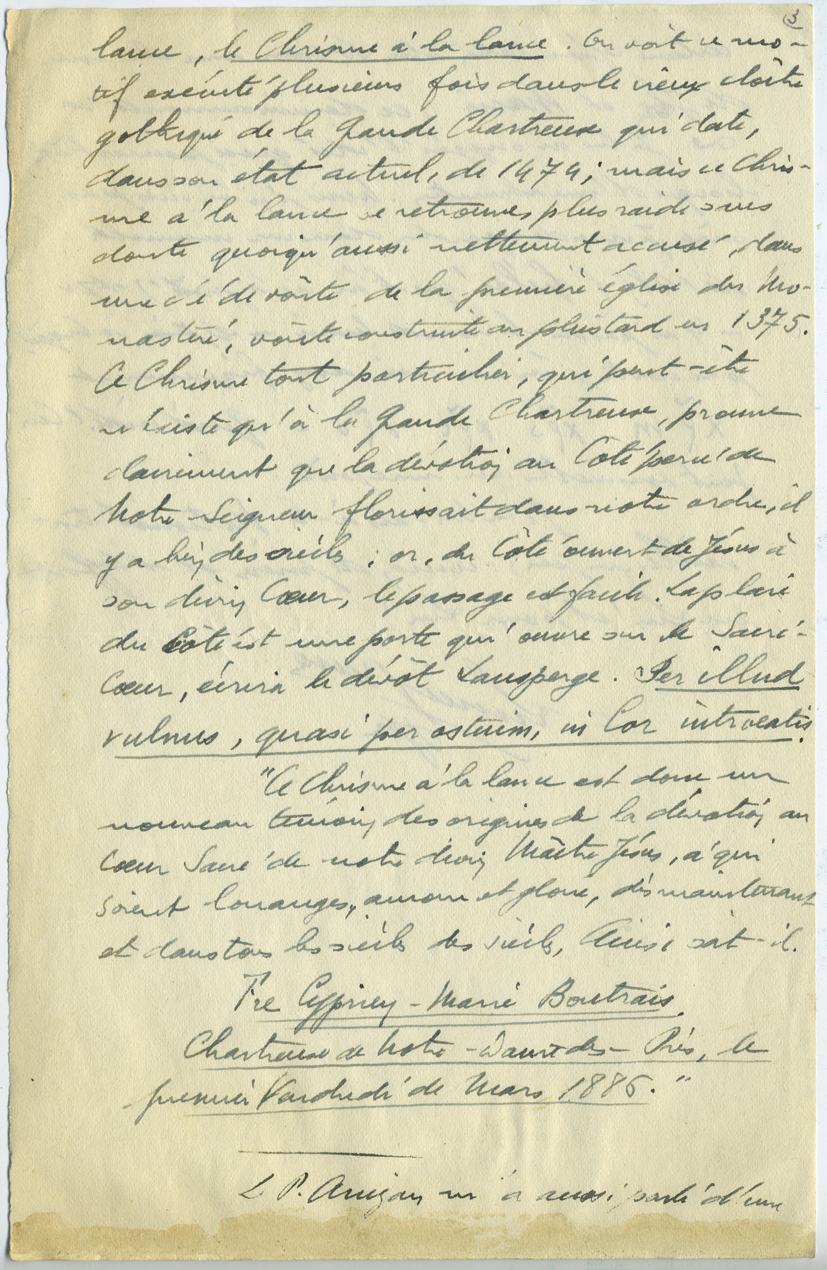 3
lance, le Chrisme à la lance. On voit ce mo-
tif exécuté plusieurs fois dans le vieux cloître
gothique de la Grande Chartreuse qui date,
dans son état actuel, de 1474; mais ce Chris-
me à la lance se retrouve, plus raide sans
doute quoiqu'aussi nettement accusé, dans
une clé de voûte de la première église du Mo-
nastère, voûte construite au plus tard en 1375.
Ce Chrisme tout particulier, qui peut-être
n'existe qu'à la Grande Chartreuse, prouve
clairement que la dévotion au Côté percé de
Notre Seigneur florissait dans notre ordre, il
y a bien des siècles; or, du Côté ouvert de Jésus à
son divin Cœur, le passage est facile. La plaie
du Côté est une porte qui ouvre sur le Sacré-
Cœur, écrira le dévôt Lansperge. Per illud
vulnus, quasi per ostium, in Cor introeatis.
"Ce Chrisme à la lance est donc un
nouveau témoin des origines de la dévotion au
Cœur Sacré de notre divin Maître Jésus, à qui
soient louanges, amour et gloire, dès maintenant
et dans tous les siècles des siècles, Ainsi soit-il.
Fre Cyprien-Marie Boutrais,
Chartreuse de Notre-Dame des-Prés, le
premier Vendredi de Mars 1886."
L P. m'a aussi parlé d'une